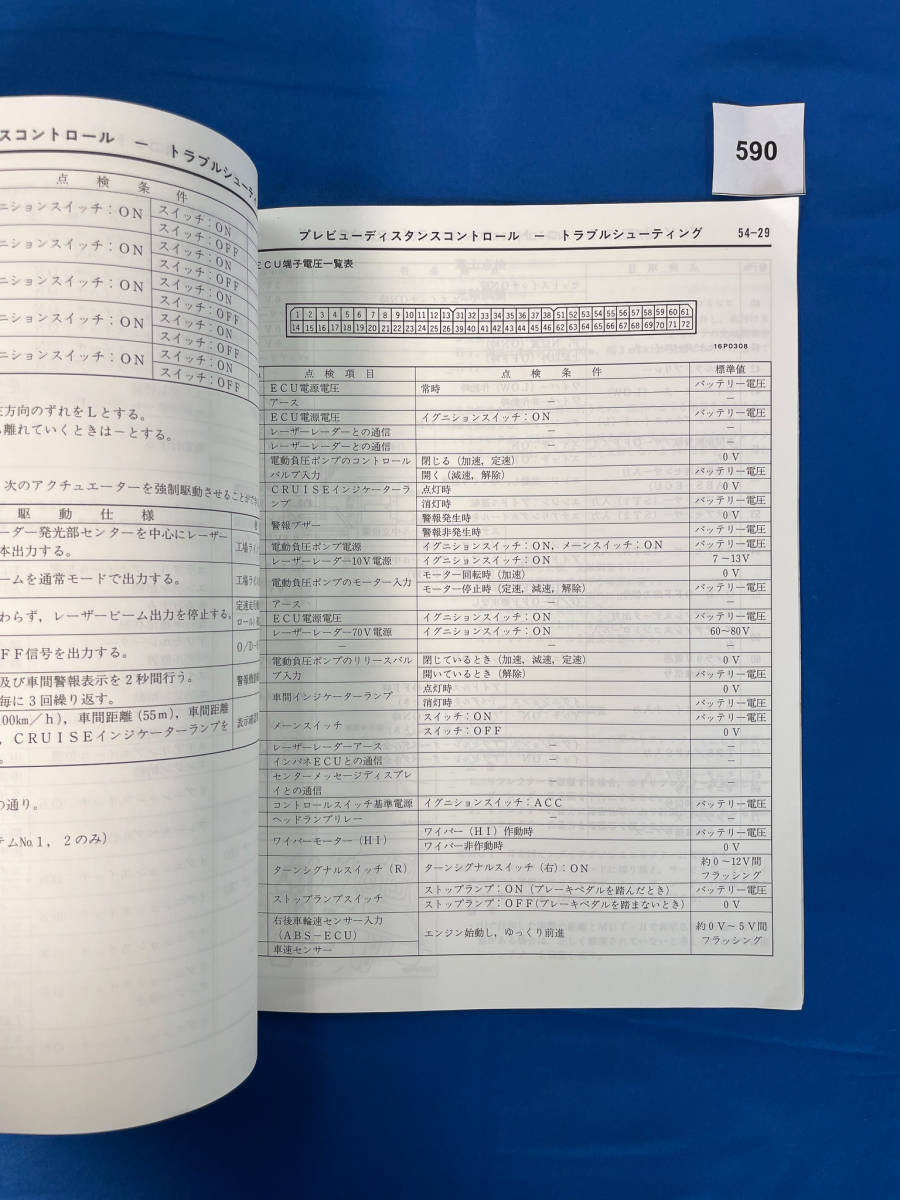 スコントロール － トラブルシューティ
点 検 条 件
ニションスイッチ：ON
スイッチ：ON
スイッチ：OFF
ニションスイッチ：ON
スイッチ：ON
スイッチ：OFF
ニションスイッチ：ON
スイッチ：ON
スイッチ：OFF
ニションスイッチ：ON
スイッチ：ON
スイッチ：OFF
ニションスイッチ：ON
スイッチ：ON
スイッチ：OFF
方向のずれをＬとする。
離れていくときは－とする。
次のアクチュエーターを強制駆動させることができ
駆 動 仕 様
ーダー発光部センターを中心にレーザー
本出力する。
工場ライ
ームを通常モードで出力する。
工場ライ
わらず，レーザービーム出力を停止する。
定速走行
ロール
FF信号を出力する。
O/D
及び車間警報表示を２秒間行う。
毎に３回繰り返す。
警報
00km／h），車間距離（55m），車間距離
，CRUISEインジケーターランプを
表示
の通り。
テム№1，2のみ）
590
プレビューディスタンスコントロール － トラブルシューティング 54-29
ECU端子電圧一覧表
1 2 3 4 5 6 7 8 9 10 11 12 13 31 32 33 34 35 36 37 38 51 52 53 54 55 56 57 58 59 60 61
14 15 16 17 18 19 20 21 22 23 24 25 26 39 40 41 42 43 44 45 46 62 63 64 65 66 67 68 69 70 71 72
16P0308
点 検 項 目 点 検 条 件 標準値
ECU電源電圧 常時 バッテリー電圧
アース － －
ECU電源電圧 イグニションスイッチ：ON バッテリー電圧
レーザーレーダーとの通信 － －
レーザーレーダーとの通信 － －
電動負圧ポンプのコントロール
バルブ入力
閉じる（加速，定速） 0V
開く（減速，解除） バッテリー電圧
CRUISEインジケーターラ
ンプ
点灯時 0V
消灯時 バッテリー電圧
警報ブザー
警報発生時 0V
警報非発生時 バッテリー電圧
電動負圧ポンプ電源 イグニションスイッチ：ON，メーンスイッチ：ON バッテリー電圧
レーザーレーダー10V電源 イグニションスイッチ：ON 7～13V
電動負圧ポンプのモーター入力
モーター回転時（加速） 0V
モーター停止時（定速，減速，解除） バッテリー電圧
アース － －
ECU電源電圧 イグニションスイッチ：ON バッテリー電圧
レーザーレーダー70V電源 イグニションスイッチ：ON 60～80V
－ － －
電動負圧ポンプのリリースバル
ブ入力
閉じているとき（加速，減速，定速） 0V
開いているとき（解除） バッテリー電圧
車間インジケーターランプ
点灯時 0V
消灯時 バッテリー電圧
メーンスイッチ
スイッチ：ON バッテリー電圧
スイッチ：OFF 0V
レーザーレーダーアース － －
インパネECUとの通信 － －
センターメッセージディスプレ
イとの通信
－ －
コントロールスイッチ基準電源 イグニションスイッチ：ACC バッテリー電圧
ヘッドランプリレー － －
ワイパーモーター（HI）
ワイパー（HI）作動時 バッテリー電圧
ワイパー非作動時 0V
ターンシグナルスイッチ（R） ターンシグナルスイッチ（右）：ON
約0～12V間
フラッシング
ストップランプスイッチ
ストップランプ：ON（ブレーキペダルを踏んだとき） バッテリー電圧
ストップランプ：OFF（ブレーキペダルを踏まないとき） 0V
右後車輪速センサー入力
（ABS－ECU）
車速センサー
エンジン始動し，ゆっくり前進
約0V～5V間
フラッシング